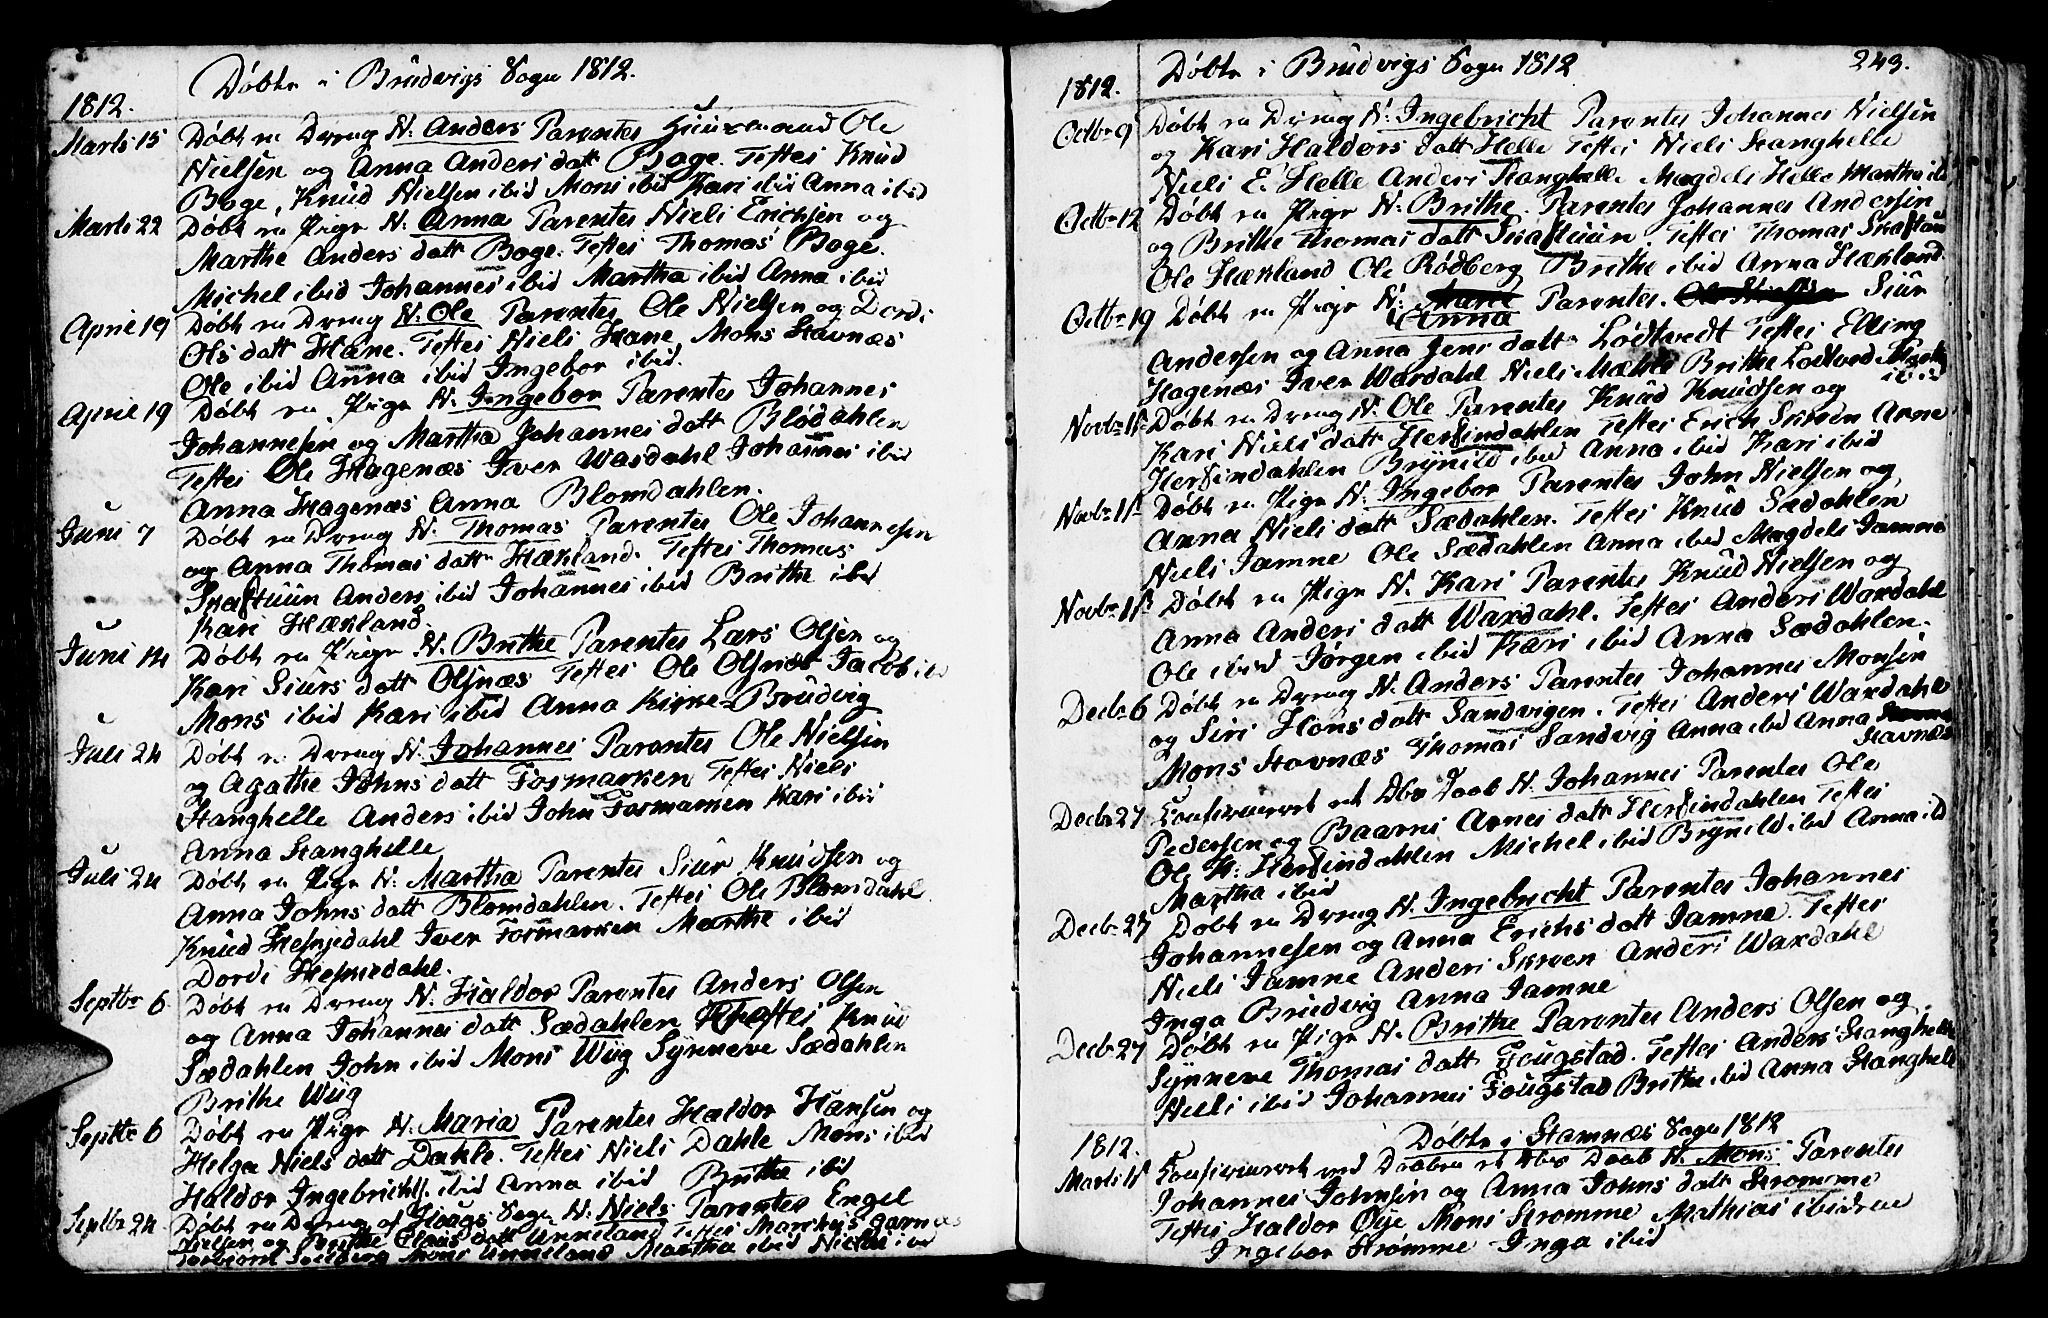 Døbte i Brudvigs Sogn 1812.
1812.
Marti 15 Døbt en Dreng N: Anders Parentes Huusmand Ole
Nielsen og Anna Anders datt Boge. Testes Knud
Boge, Knud Nielsen ibid Mons ibid Kari ibid Anna ibid
Marti 22 Døbt en Pige N: Anna Parentes Niels Erichsen og
Marthe Anders datt Boge. Testes Thomas Boge.
Michel ibid Johannes ibid Martha ibid Anna ibid
April 19 Døbt en Dreng N: Ole Parentes Ole Nielsen og Dordi
Ols datt Hane. Testes Niels Hane, Mons Stavnæs
Ole ibid Anna ibid Ingebor ibid.
April 19 Døbt en Pige N. Ingebor Parentes Johannes
Johannesen og Martha Johannes datt Blødahlen
Testes Ole Hagenæs Iver Waxdahl Johannes ibid
Anna Hagenæs Anna Blomdahlen.
Juni 7 Døbt en Dreng N. Thomas Parentes Ole Johannesen
og Anna Thomas datt Hækland. Testes Thomas
Skaftuun Anders ibid Johannes ibid Brithe ibid
Kari Hækland.
Juni 14 Døbt en Pige N. Brithe Parentes Lars Olsen og
Kari Siurs datt Olsnæs Testes Ole Olsnæs Jacob ibd
Mons ibid Kari ibid Anna Kirke-Brudvig
Juli 24 Døbt en Dreng N. Johannes Parentes Ole Nielsen
og Agathe Johns datt Fosmarken Testes Niels
Stanghelle Anders ibid John Fosmarken Kari ibid
Anna Stanghelle
Juli 24 Døbt en Pige N: Martha Parentes Siur Knudsen og
Anna Johns datt Blomdahlen. Testes Ole Blomdahl
Knud Hesjedahl Iver Fosmarken Marthe ibid
Dordi Hesjedahl.
Septbr 6 Døbt en Dreng N. Haldor Parentes Anders Olsen
og Anna Johannes datt Sædahlen Testes Knud
Sædahlen John ibid Mons Wiig Synneve Sædahlen
Brithe Wiig
Septbr 6 Døbt en Pige N. Maria Parentes Haldor Hansen og
Helga Niels datt Dahle. Testes Niels Dahle Mons ibid
Haldor Ingebrichts. ibid Anna ibid Brithe ibid
Septbr 24 Døbt en Dreng af Hougs Sogn N. Niels Parentes Engel
Nielsen og Brithe Claus datt Unneland Testes Garnæs
Solberg Mons Unneland Martha ibid Nielsi ibid
243.
Døbte i Brudvigs Sogn 1812
1812.
Octbr 9 Døbt en Dreng N: Ingebricht Parentes Johannes Nielsen
og Kari Haldors datt Helle Testes Niels Stanghelle
Niels E. Helle Anders Stanghelle Magdeli Helle Martha ibd
Octbr 12 Døbt en Pige N: Brithe. Parentes Johannes Andersen
og Brithe Thomas datt Skaftuun Testes Thomas Skaftuun
Ole Hækland Ole Rødberg Brithe ibid Anna Hækland.
Octbr 19 Døbt en Pige N: Marte Parentes. Ole Nielsen Siur
Anna
Andersen og Anna Jens datt Lødtvedt Testes Elling
Hagenæs Iver Waxdahl Niels Mæhle Brithe Lodtved Martha
ibid
Novbr 15 Døbt en Dreng N. Ole Parentes Knud Knudsen og
Kari Niels datt Hersindahlen Testes Erich Skreen Arne
Hersindahlen Brynild ibid Anna ibid Kari ibid
Novbr 15 Døbt en Pige N. Ingebor Parentes John Nielsen og
Anna Niels datt Sædahlen. Testes Knud Sædahlen
Niels Jamne Ole Sædahlen Anna ibid Magdeli Jamne
Novbr 15 Døbt en Pige N. Kari Parentes Knud Nielsen og
Anna Anders datt Waxdahl. Testes Anders Waxdahl
Ole ibid Jørgen ibid Kari ibid Anna Sædahlen.
Decbr 6 Døbt en Dreng N. Anders Parentes Johannes Monsen
og Siri Hans datt Sandvigen. Testes Anders Waxdahl
Mons Stavnæs Thomas Sandvig Anna ibid Anna
Stavnæs
Decbr 27 Confirmeret et Hbr Daab N. Johannes Parentes Ole
Pedersen og Baarni Arnes datt Hersindahlen Testes
Ole K. Hersindahlen Michel ibid Brynild ibid Anna ibd
Martha ibid
Decbr 27 Døbt en Dreng N. Ingebricht Parentes Johannes
Johannesen og Anna Erichs datt Jamne. Testes
Niels Jamne Anders Skreen Anders Waxdahl
Inga Brudvig Anna Jamne
Decbr 27 Døbt en Pige N. Brithe Parentes Anders Olsen og
Synneve Thomas datt Fougstad. Testes Anders Stanghelle
Niels ibid Johannes Fougstad Brithe ibid Anna Stanghelle
Døbte i Stamnæs Sogn 1812
1812.
Marti 15 Confirmeret ved Daaben et Hbr Daab N. Mons Parentes
Johannes Johnsen og Anna Johns datt Strømme
Testes Haldor Øye Mons Strømme Mathias ibidem
Ingebor Strømme Inga ibid